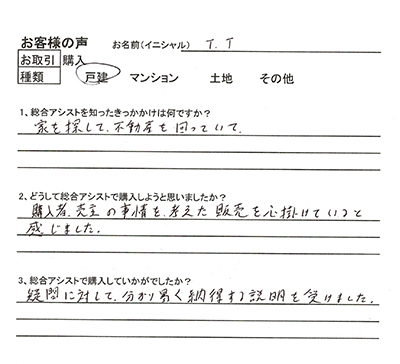 お客様の声 お名前(イニシャル) T.T
お取引 購入
種類 戸建 マンション 土地 その他
1、総合アシストを知ったきっかけは何ですか?
家を探して、不動産を回っていて.
2、どうして総合アシストで購入しようと思いましたか?
購入者、売主の事情を考えた販売を心掛けていると
感じました。
3、総合アシストで購入していかがでしたか?
疑問に対して、分かり易く納得する説明を受けました。